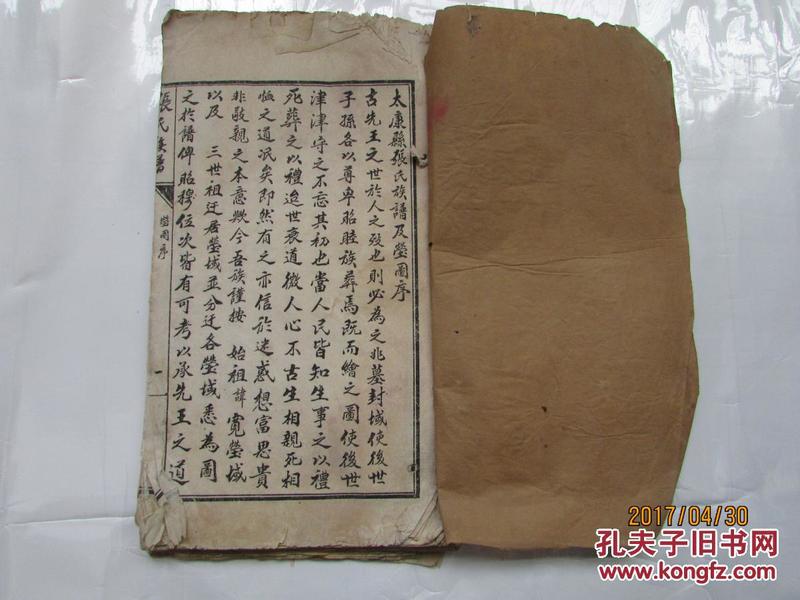 太康縣張氏族譜及塋圖序
古先王之世於人之歿也則必為之兆墓封域使後世
子孫各以尊卑昭睦族葬焉既而繪之圖使後世
津津守之不忘其初也當人民皆知生事之以禮
死葬之以禮迨世衰道微人心不古生相親死相
恤之道泯矣即然有之亦信於迷惑想富思貴
非敬親之本意歟今吾族謹按 始祖諱寬塋域
以及 三世祖迁居塋域並分迁各塋域悉為圖
之於譜俾昭穆位次皆有可考以承先王之道
張氏族譜
塋圖序
一
2017/04/30
孔夫子旧书网
www.kongfz.com